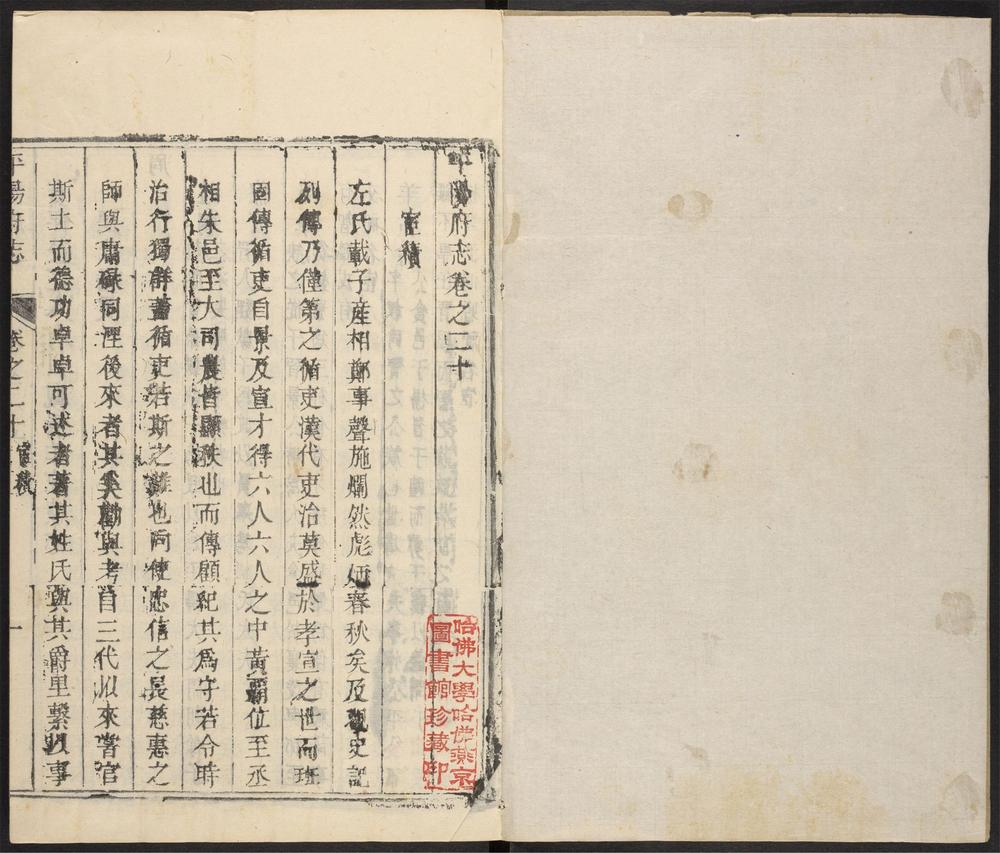 平陽府志卷之二十
宦積
左氏載子産相鄭事聲施爛然彪炳春秋矣及觀史記
列傳乃僅第之循吏漢代吏治莫盛於孝宣之世而班
固傳循吏自景及宣才得六人六人之中黃霸位至丞
相朱邑至大司農皆顯秩也而傳顧紀其為守若令時
治行獨群蓋循吏若斯之難也向使忠信之長慈惠之
師與庸碌同湮後來者其奚勸與考自三代以來嘗官
斯土而德功卓卓可述者著其姓氏與其爵里繫以事
平陽府志
卷之二十
宦積
一
哈佛大學哈佛燕京
圖書館珍藏印